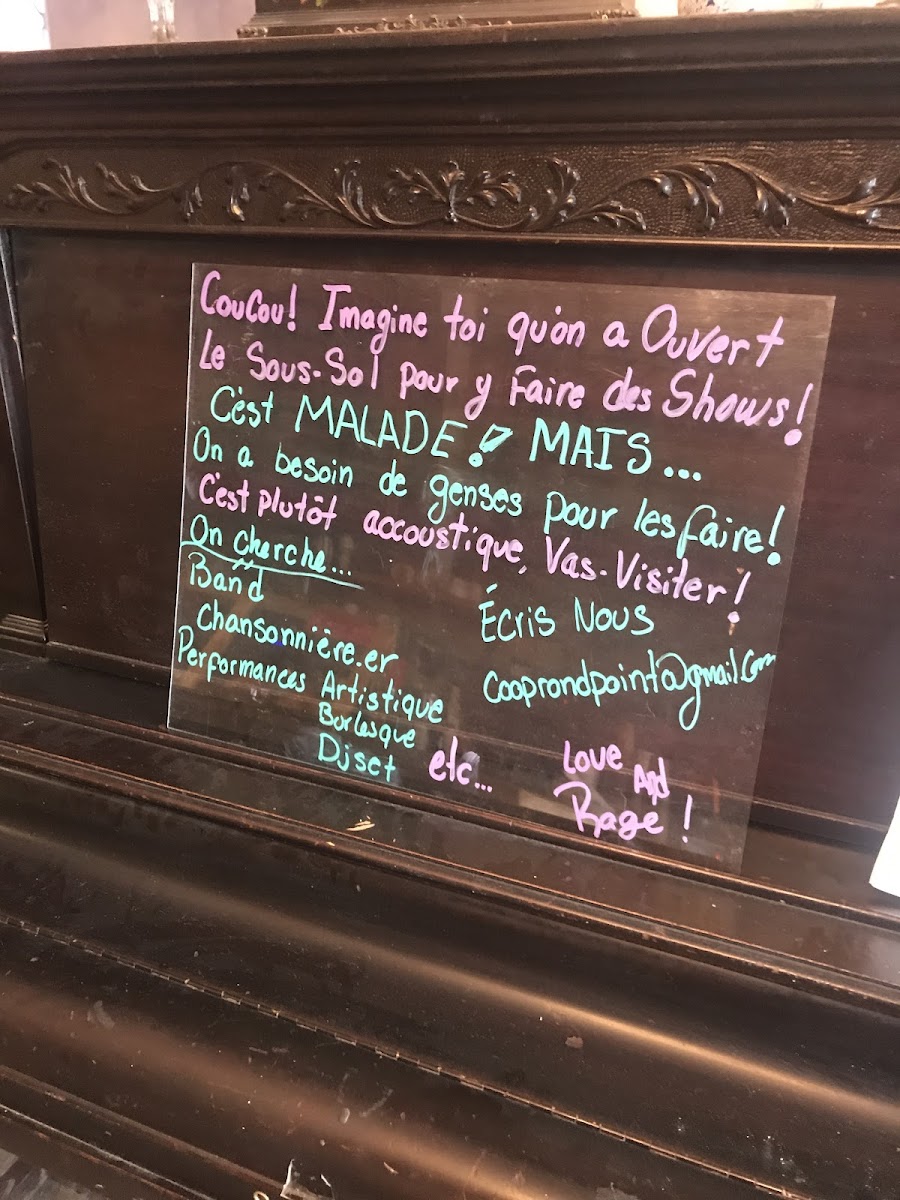 Coucou! Imagine toi qu'on a Ouvert
Le Sous-Sol pour y Faire des Shows!
C'est MALADE! MAIS...
On a besoin de genses pour les faire!
C'est plutôt accoustique, Vas-Visiter!
On cherche...
Band
Chansonnière.er
Performances Artistique
Burlesque
Djset etc...
Écris Nous
cooprondpoint@gmail.com
Love And
Rage!